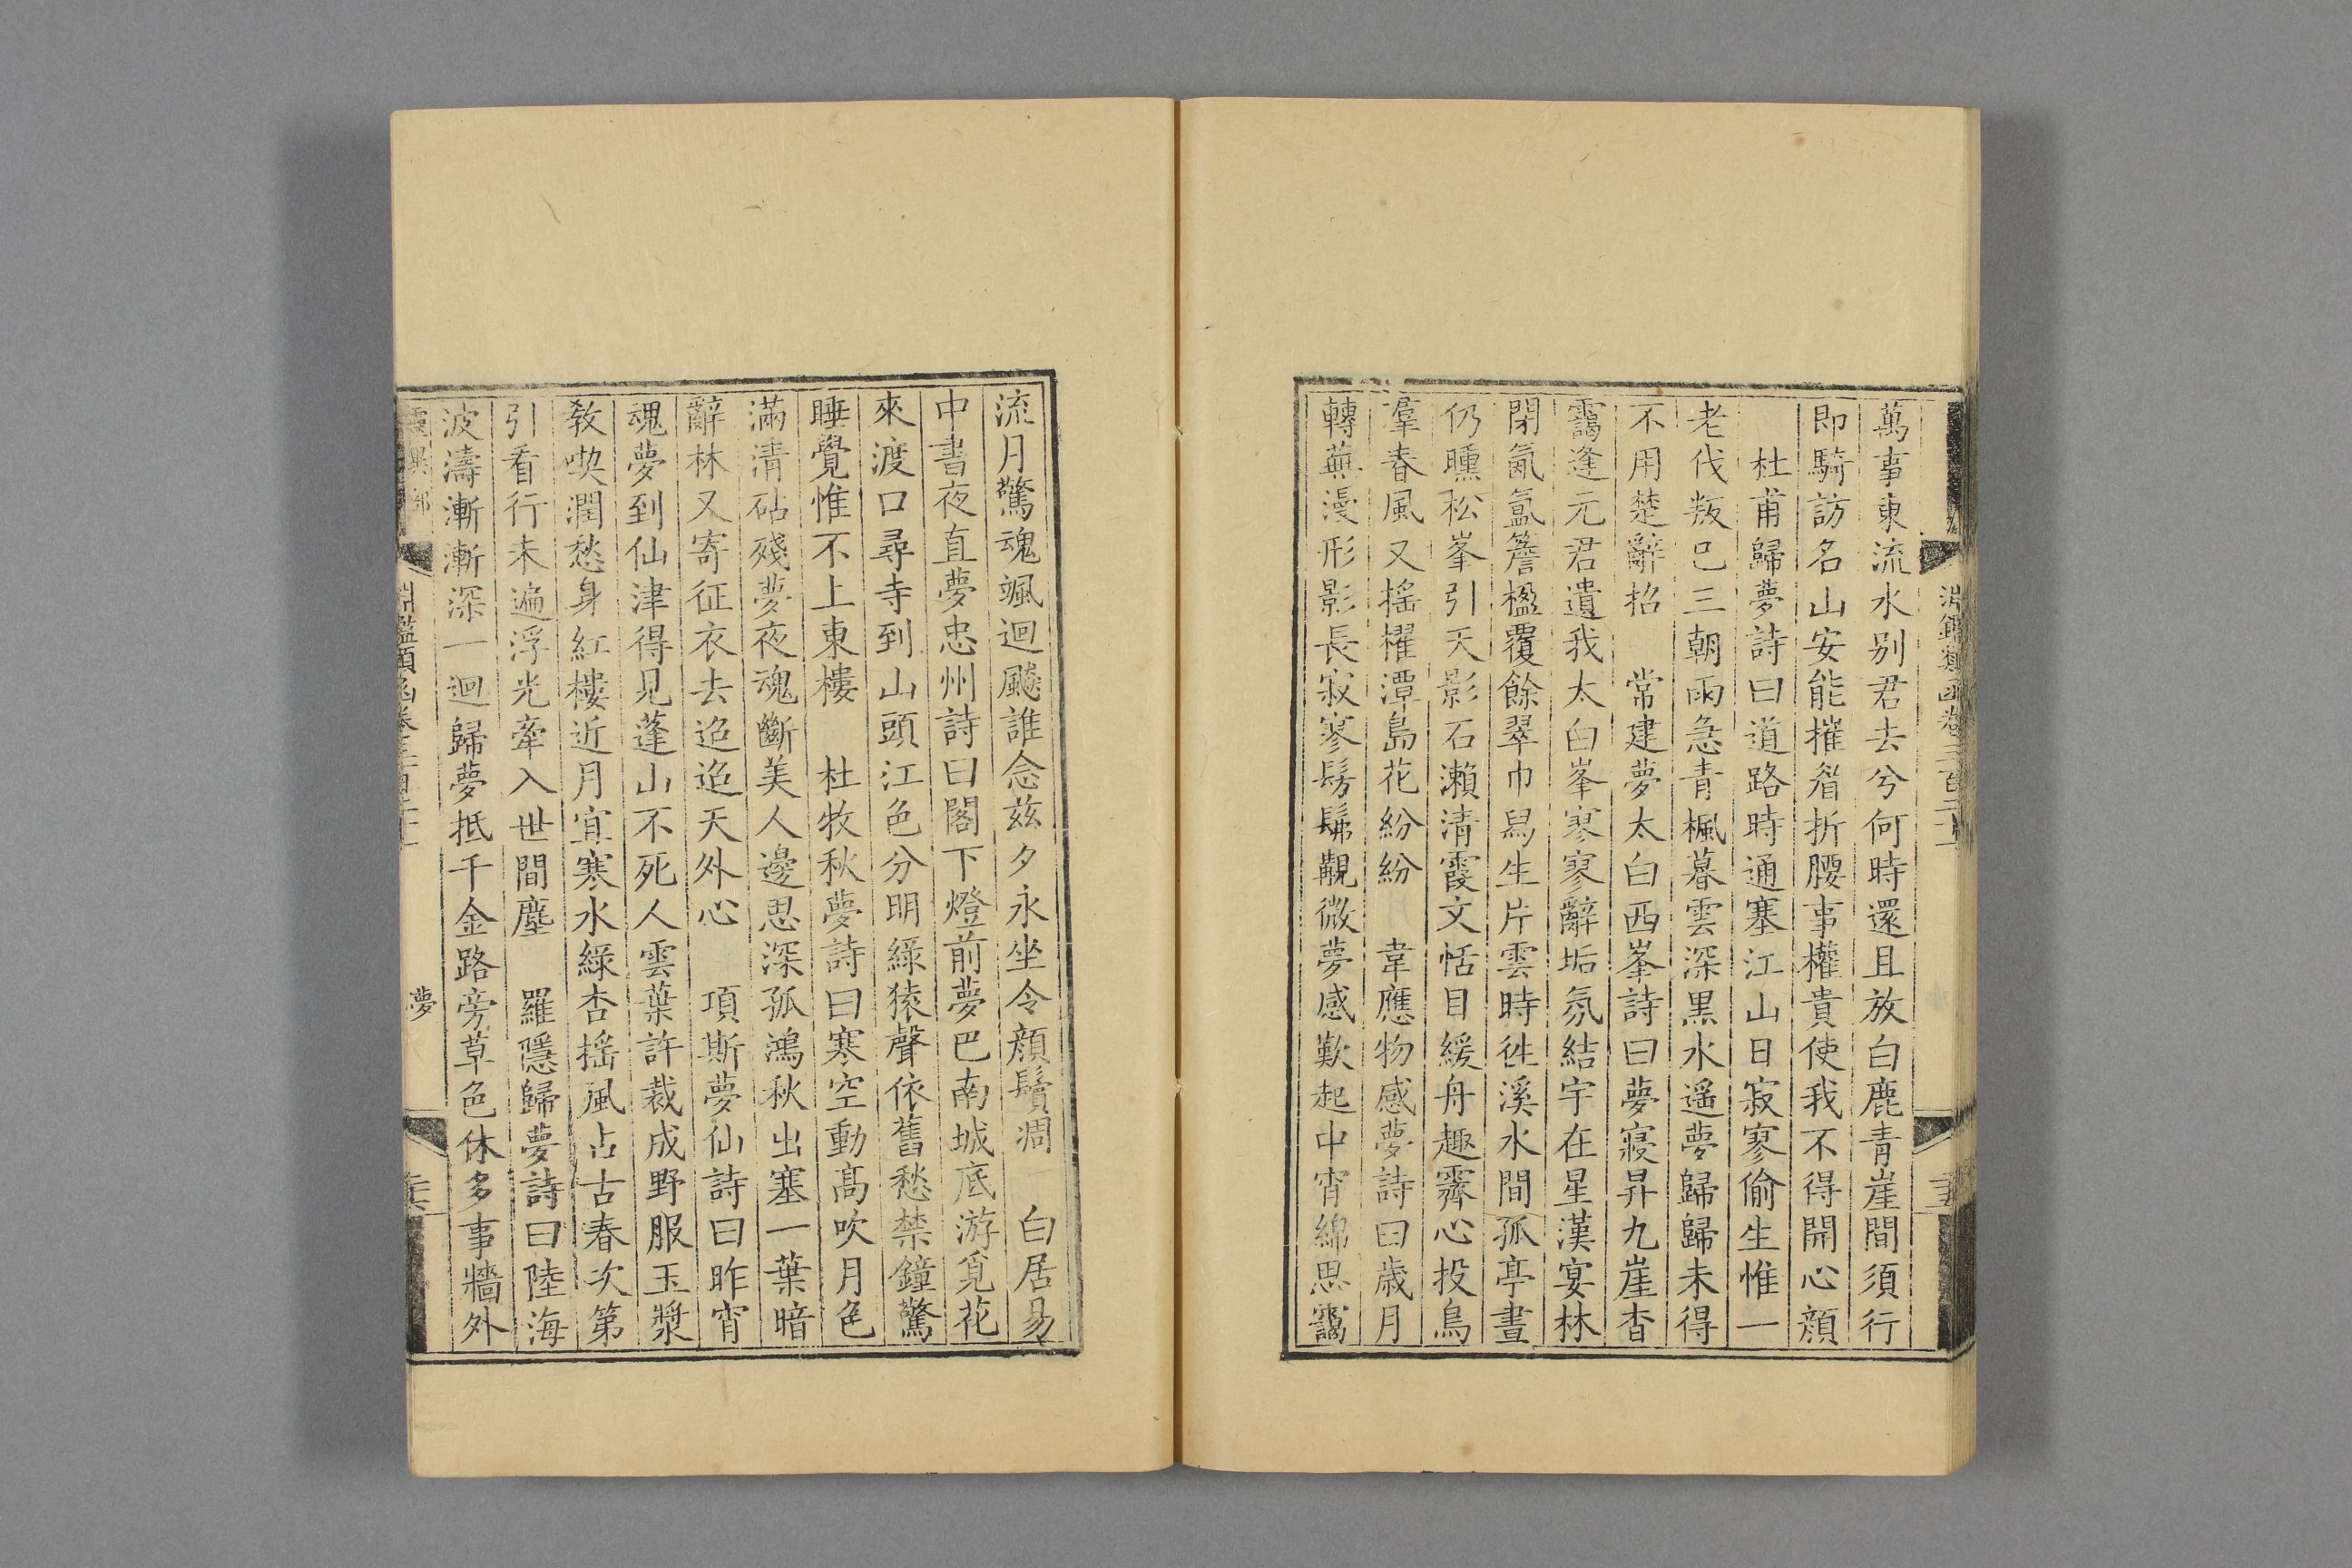 萬事東流水别君去兮何時還且放白鹿青崖間須行
即騎訪名山安能摧眉折腰事權貴使我不得開心顔
杜甫歸夢詩曰道路時通塞江山日寂寥偷生惟一
老伐叛已三朝雨急青楓暮雲深黒水遥夢歸歸未得
不用楚辭招　常建夢太白西峯詩曰夢寢昇九崖杳
靄逢元君遺我太白峯寥寥辭垢氛結宇在星漢宴林
閉氤氲簷楹覆餘翠巾舄生片雲時徃溪水間孤亭晝
仍曛松峯引天影石瀨清霞文恬目緩舟趣霽心投鳥
羣春風又揺櫂潭島花紛紛　韋應物感夢詩曰歳月
轉蕪漫形影長寂寥髣髴覯微夢感歎起中宵綿思靄
流月驚魂颯迴飈誰念兹夕永坐令顔鬢凋　白居易
中書夜直夢忠州詩曰閣下燈前夢巴南城底游覓花
來渡口尋寺到山頭江色分明緑猿聲依舊愁禁鐘驚
睡覺惟不上東樓　杜牧秋夢詩曰寒空動髙吹月色
滿清砧殘夢夜魂斷美人邊思深孤鴻秋出塞一葉暗
辭林又寄征衣去迢迢天外心　項斯夢仙詩曰昨宵
魂夢到仙津得見蓬山不死人雲葉許裁成野服玉漿
教喫潤愁身紅樓近月宜寒水緑杏揺風占古春次第
引看行未遍浮光牽入世間塵　羅隱歸夢詩曰陸海
波濤漸漸深一迴歸夢抵千金路旁草色休多事牆外
淵鑑類函卷三百二十
夢